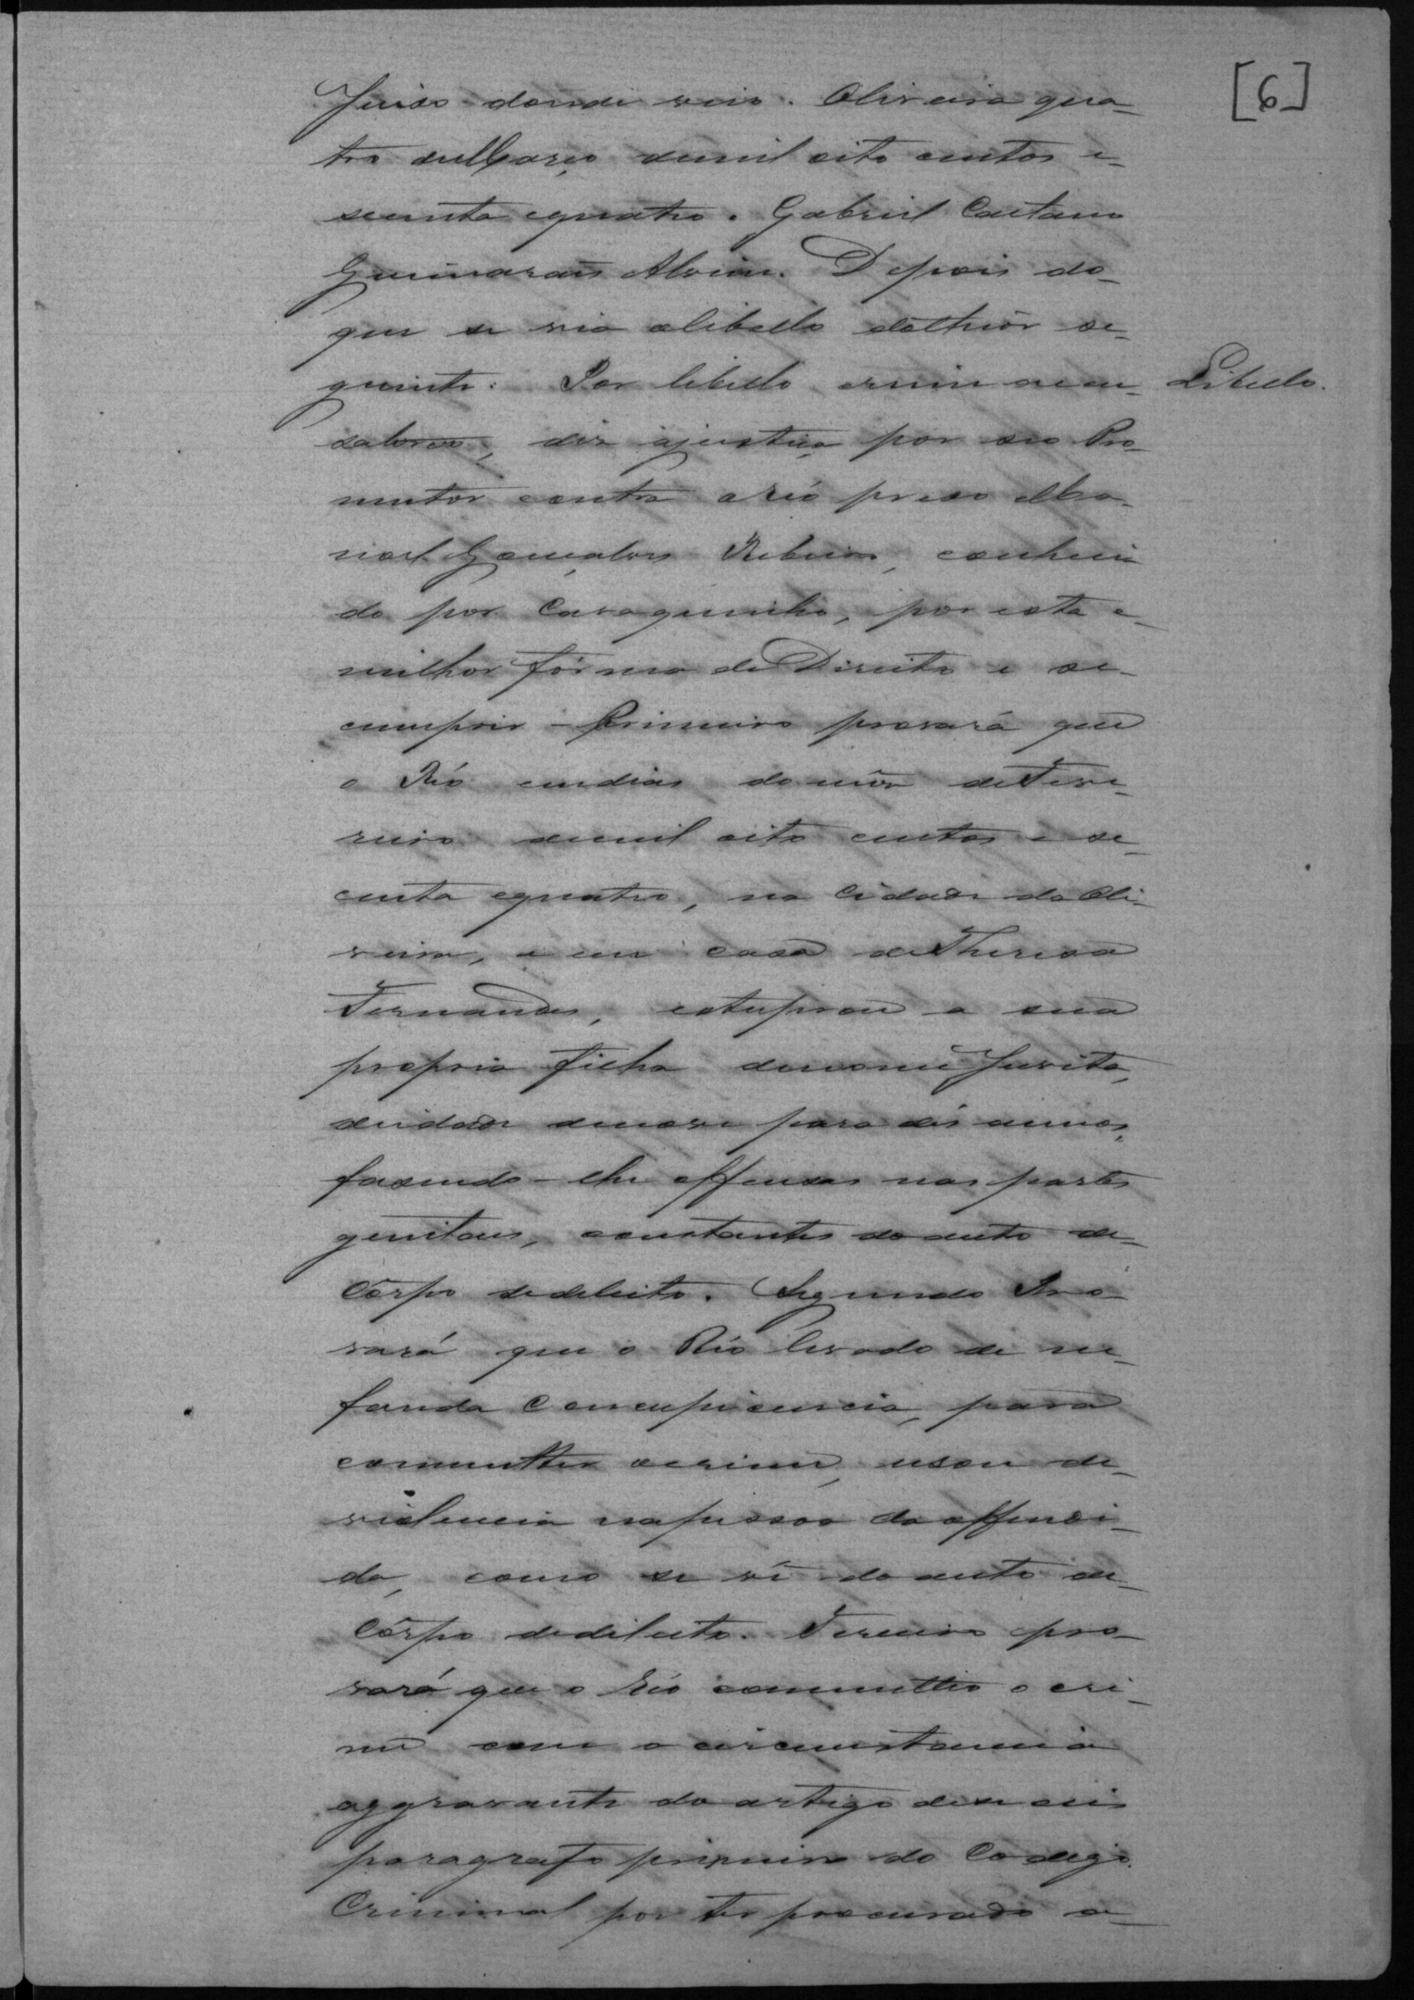 [6]
Juiso donde veio. Oliveira qua-
tro deMarço demil oito centos e-
secenta equatro. Gabriel Caetano
Guimarães Alvim. Depois do-
que se via olibello dothiôr se-
guinte: Por libello crime accu- Libello.
satorio, diz ajustiça por seo Pro-
mutor contra oréo preso Ma-
noel Gonçalves Ribeiro, conheci
do por Cavaquinho, por esta e-
milhor fórma deDireito e se-
cumprir - Primeiro provará que
o Réo emdias domês deFeve-
reiro demil oito centos e se-
centa equatro, na Cidade da Oli-
veira, e em casa deThereza
Fernandes, estuprou a sua
propria filha denome Jurita,
deidade denove para dés annos,
fasendo-lhe offensas nas partes
genitaes, constantes do auto de-
Côrpo dedelicto. Segundo Pro-
vará que o Réo levado de ne-
fanda Concupicencia, para
commetter ocrime, usou de-
violencia napessoa daoffendi-
da, como se vê do auto de-
Côrpo dedelicto. Terceiro pro-
vará que o Réo commetteo o cri-
me com a circumstancia
aggravante do artigo deseceis
paragrafo primeiro do Codigo
Criminal por ter procurado a-